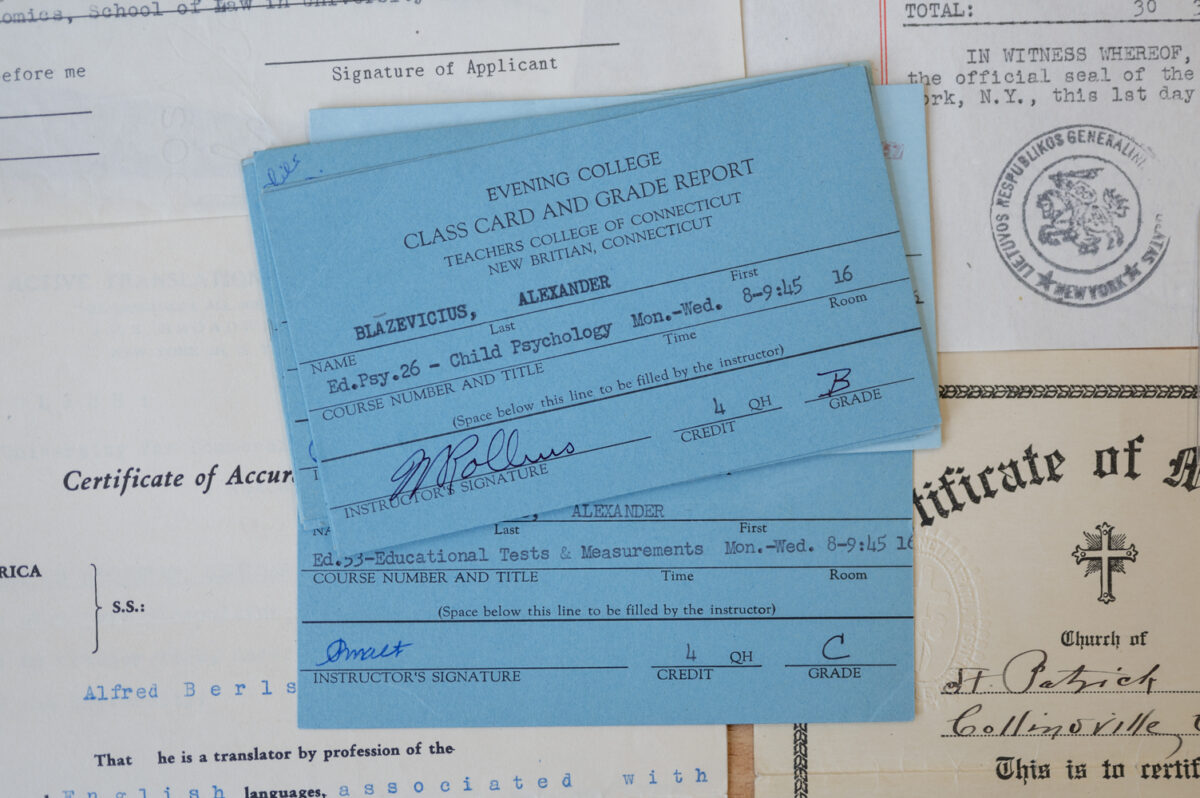 omics, School of Law in University
efore me
Signature of Applicant
TOTAL: 30
IN WITNESS WHEREOF,
the official seal of the
ork, N.Y., this 1st day
LIETUVOS RESPUBLIKOS GENERALINI
NEW YORK
EVENING COLLEGE
CLASS CARD AND GRADE REPORT
TEACHERS COLLEGE OF CONNECTICUT
NEW BRITIAN, CONNECTICUT
BLAZEVICIUS, ALEXANDER
NAME Last First
Ed.Psy.26 - Child Psychology Mon.-Wed. 8-9:45 16
COURSE NUMBER AND TITLE Time Room
(Space below this line to be filled by the instructor)
M Rollins 4 QH B
INSTRUCTOR'S SIGNATURE CREDIT GRADE
ALEXANDER
Last First
Ed.53-Educational Tests & Measurements Mon.-Wed. 8-9:45 16
COURSE NUMBER AND TITLE Time Room
(Space below this line to be filled by the instructor)
4 QH C
INSTRUCTOR'S SIGNATURE CREDIT GRADE
Certificate of Accur
RICA
S.S.:
Alfred Berls
That he is a translator by profession of the
English languages, associated with
tificate of
Church of
St. Patrick
Collinsville
This is to certif